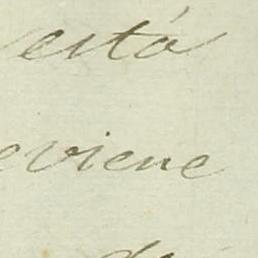 está
eviene